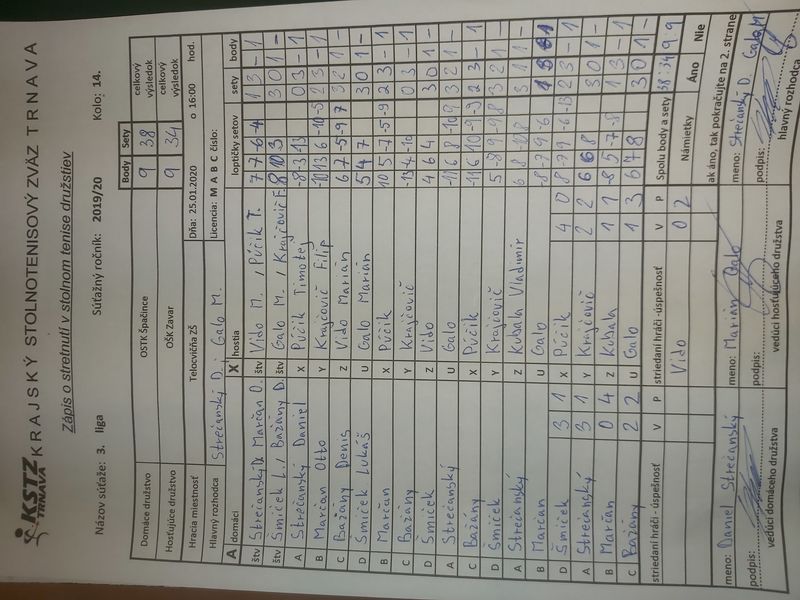 KSTZ TRNAVA
KRAJSKÝ STOLNOTENISOVÝ ZVÄZ TRNAVA
Zápis o stretnutí v stolnom tenise družstiev
Názov súťaže: 3. liga Súťažný ročník: 2019/20 Kolo: 14.
Body Sety
Domáce družstvo OSTK Špačince 9 38 celkový výsledok
Hosťujúce družstvo OŠK Zavar 9 34 celkový výsledok
Hracia miestnosť Telocvičňa ZŠ Dňa: 25.01.2020 o 16:00 hod.
Hlavný rozhodca Strečanský D. ; Galo M. Licencia: M A B C číslo:
A domáci X hostia loptičky setov sety body
štv Strečanský D. Marčan O. štv Vido M. / Púčik T. 7 7 -6 -4
štv Šmiček L. / Bažány D. štv Galo M. / Krajčovič F. 8 10 3 3 0 1 -
A Strečanský Daniel X Púčik Timotej -8 -3 -13 0 3 - 1
B Marčan Otto Y Krajčovič Filip -10 13 6 -10 -5 2 3 - 1
C Bažány Denis Z Vido Marián 6 7 -5 -9 7 3 2 1 -
D Šmiček Lukáš U Galo Marián 5 4 7 3 0 1 -
B Marčan X Púčik 10 5 -7 -5 -9 2 3 - 1
C Bažány Y Krajčovič -13 -4 -10 0 3 - 1
D Šmiček Z Vido 4 6 4 3 0 1 -
A Strečanský U Galo -11 6 8 -10 9 3 2 1 -
C Bažány X Púčik -11 6 10 -9 -9 2 3 - 1
D Šmiček Y Krajčovič 5 -8 9 -9 8 3 2 1 -
A Strečanský Z Kubala Vladimír 6 8 -10 8 3 1 1 -
B Marčan U Galo -8 -7 9 -6 1 3 - 1
D Šmiček 3 1 X Púčik 4 0 8 -7 9 -6 -13 2 3 - 1
A Strečanský 3 1 Y Krajčovič 2 2 6 6 8 3 0 1 -
B Marčan 0 4 Z Kubala 1 1 -8 5 -7 -8 1 3 - 1
C Bažány 2 2 U Galo 1 3 6 7 8 3 0 1 -
striedaní hráči - úspešnosť V P striedaní hráči -úspešnosť V P Spolu body a sety 38:34 9:9
Vido 0 2 Námietky Áno Nie
ak áno, tak pokračujte na 2. strane
meno: Daniel Strečanský meno: Marián Galo meno: Strečanský D. Galo M
podpis: podpis: podpis:
vedúci domáceho družstva vedúci hosťujúceho družstva hlavný rozhodca